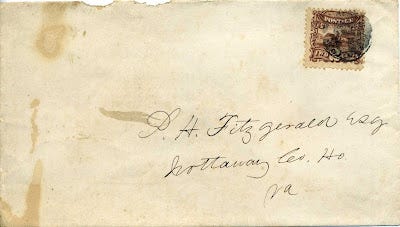 POSTAGE
P. H. Fitzgerald Esq
Nottaway Co. Ho.
Va